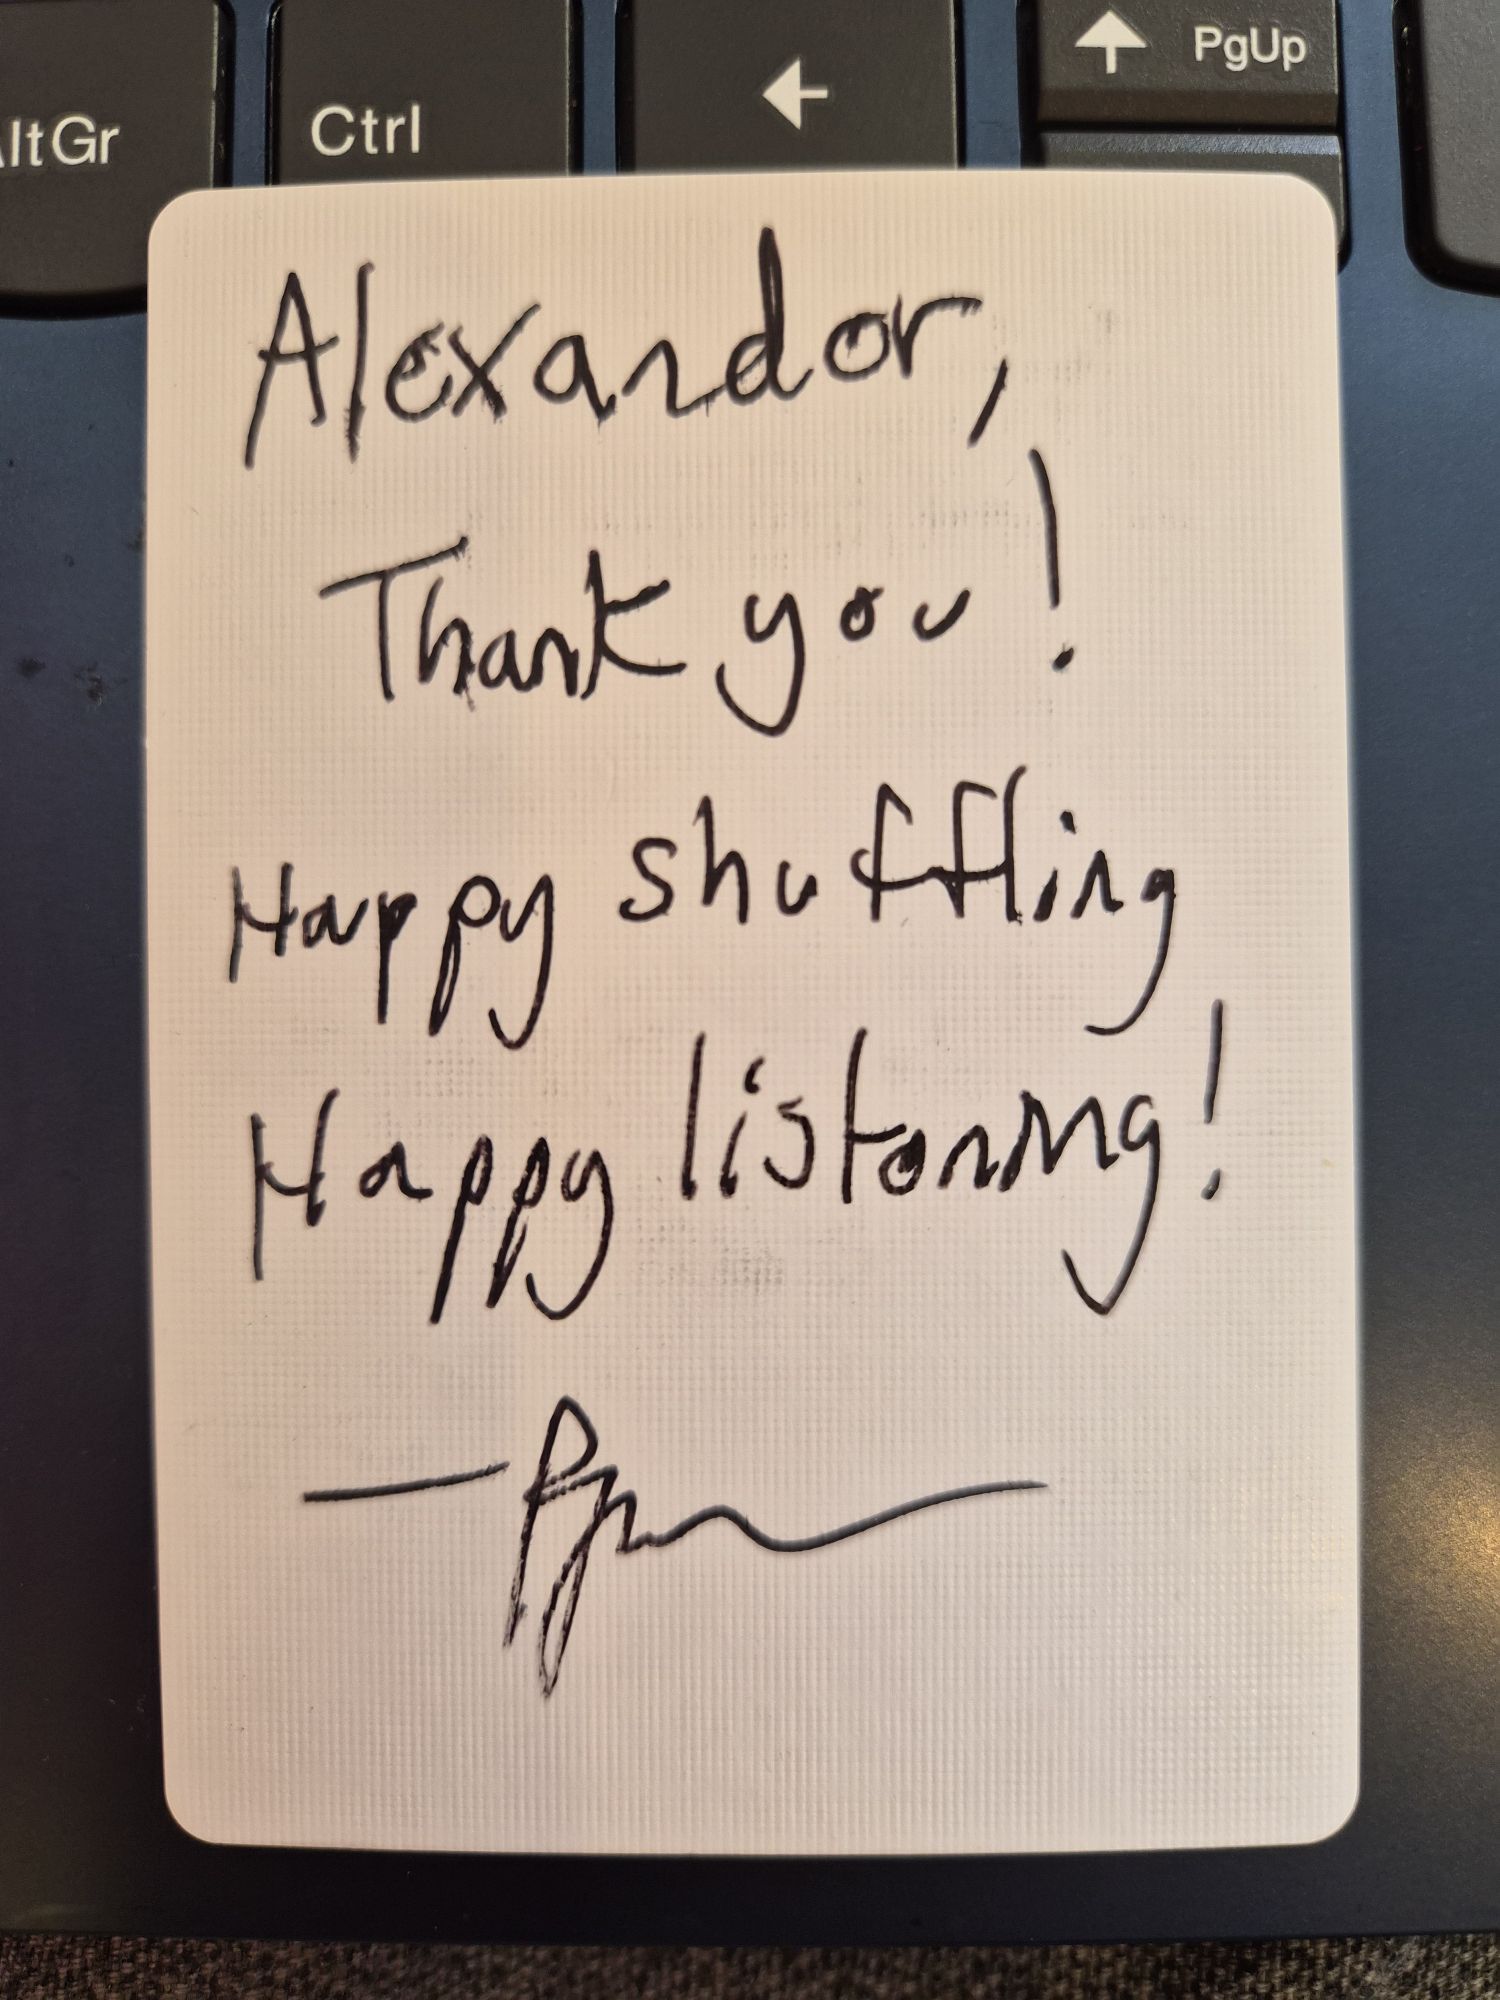 AltGr Ctrl ← ↑ PgUp
Alexander,
Thank you!
Happy shuffling
Happy listening!